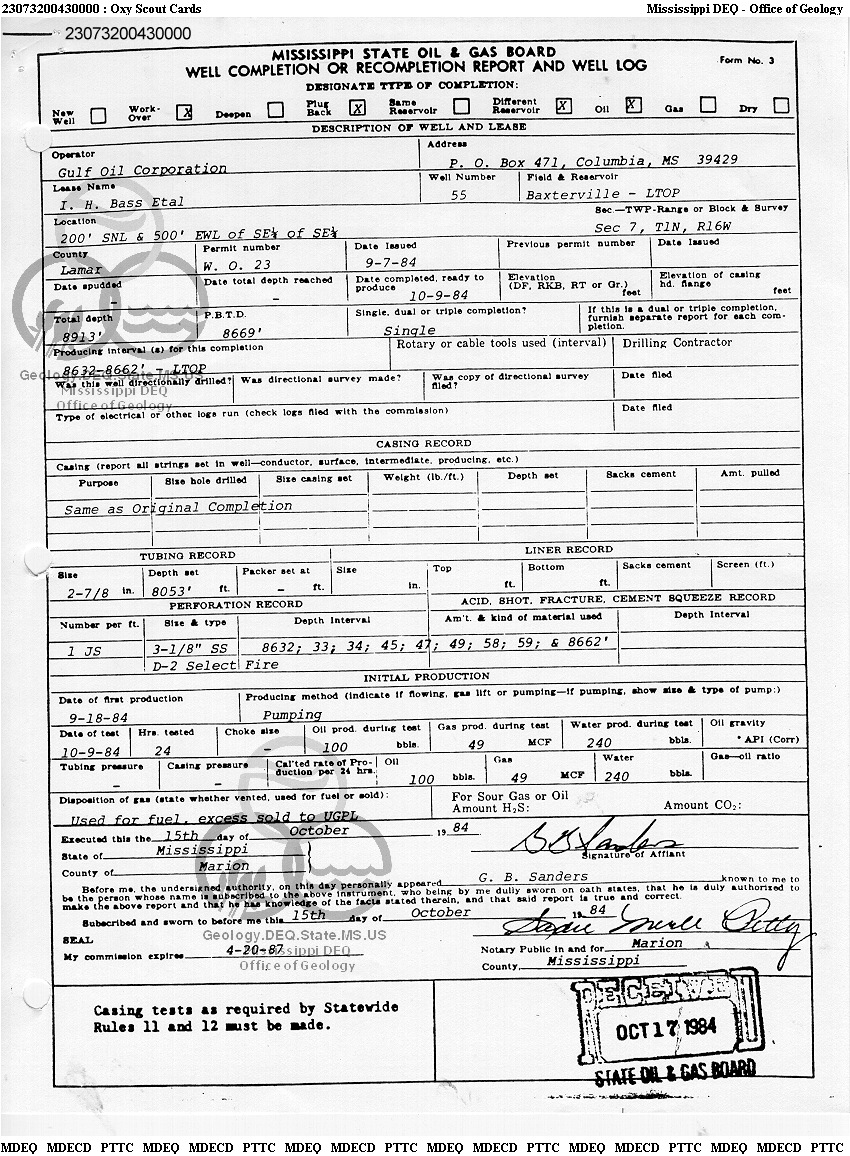 23073200430000 : Oxy Scout Cards Mississippi DEQ - Office of Geology
23073200430000
MISSISSIPPI STATE OIL & GAS BOARD
WELL COMPLETION OR RECOMPLETION REPORT AND WELL LOG Form No. 3
DESIGNATE TYPE OF COMPLETION:
New Well Work-Over X Deepen Plug Back X Same Reservoir Different Reservoir X Oil X Gas Dry
DESCRIPTION OF WELL AND LEASE
Operator Address
Gulf Oil Corporation P. O. Box 471, Columbia, MS 39429
Lease Name Well Number Field & Reservoir
I. H. Bass Etal 55 Baxterville - LTOP
Location Sec.—TWP-Range or Block & Survey
200' SNL & 500' EWL of SE¼ of SE¼ Sec 7, T1N, R16W
County Permit number Date Issued Previous permit number Date Issued
Lamar W. O. 23 9-7-84
Date spudded Date total depth reached Date completed, ready to produce Elevation (DF, RKB, RT or Gr.) feet Elevation of casing hd. flange feet
- - 10-9-84
Total depth P.B.T.D. Single, dual or triple completion? If this is a dual or triple completion, furnish separate report for each completion.
8913' 8669' Single
Producing interval (s) for this completion Rotary or cable tools used (interval) Drilling Contractor
8632-8662' - LTOP
Geology.DEQ.State.MS.US
Was this well directionally drilled? Was directional survey made? Was copy of directional survey filed? Date filed
Mississippi DEQ
Office of Geology
Type of electrical or other logs run (check logs filed with the commission) Date filed
CASING RECORD
Casing (report all strings set in well—conductor, surface, intermediate, producing, etc.)
Purpose Size hole drilled Size casing set Weight (lb./ft.) Depth set Sacks cement Amt. pulled
Same as Original Completion
TUBING RECORD LINER RECORD
Size Depth set Packer set at Size Top Bottom Sacks cement Screen (ft.)
2-7/8 in. 8053' ft. - ft. in. ft. ft.
PERFORATION RECORD ACID, SHOT, FRACTURE, CEMENT SQUEEZE RECORD
Number per ft. Size & type Depth Interval Am't. & kind of material used Depth Interval
1 JS 3-1/8" SS 8632; 33; 34; 45; 47; 49; 58; 59; & 8662'
D-2 Select Fire
INITIAL PRODUCTION
Date of first production Producing method (indicate if flowing, gas lift or pumping—if pumping, show size & type of pump:)
9-18-84 Pumping
Date of test Hrs. tested Choke size Oil prod. during test Gas prod. during test Water prod. during test Oil gravity
10-9-84 24 - 100 bbls. 49 MCF 240 bbls. ° API (Corr)
Tubing pressure Casing pressure Cal'ted rate of Production per 24 hrs. Oil Gas Water Gas—oil ratio
- - 100 bbls. 49 MCF 240 bbls.
Disposition of gas (state whether vented, used for fuel or sold): For Sour Gas or Oil
Amount H₂S: Amount CO₂:
Used for fuel, excess sold to UGPL
Executed this the 15th day of October 19 84
State of Mississippi
Signature of Affiant
County of Marion
Before me, the undersigned authority, on this day personally appeared G. B. Sanders known to me to
be the person whose name is subscribed to the above instrument, who being by me dully sworn on oath states, that he is duly authorized to
make the above report and that he has knowledge of the facts stated therein, and that said report is true and correct.
Subscribed and sworn to before me this 15th day of October 19 84
Geology.DEQ.State.MS.US
SEAL
Mississippi DEQ
Notary Public in and for Marion
My commission expires 4-20-87
Office of Geology
County Mississippi
Casing tests as required by Statewide
Rules 11 and 12 must be made.
RECEIVED
OCT 17 1984
STATE OIL & GAS BOARD
MDEQ MDECD PTTC MDEQ MDECD PTTC MDEQ MDECD PTTC MDEQ MDECD PTTC MDEQ MDECD PTTC MDEQ MDECD PTTC